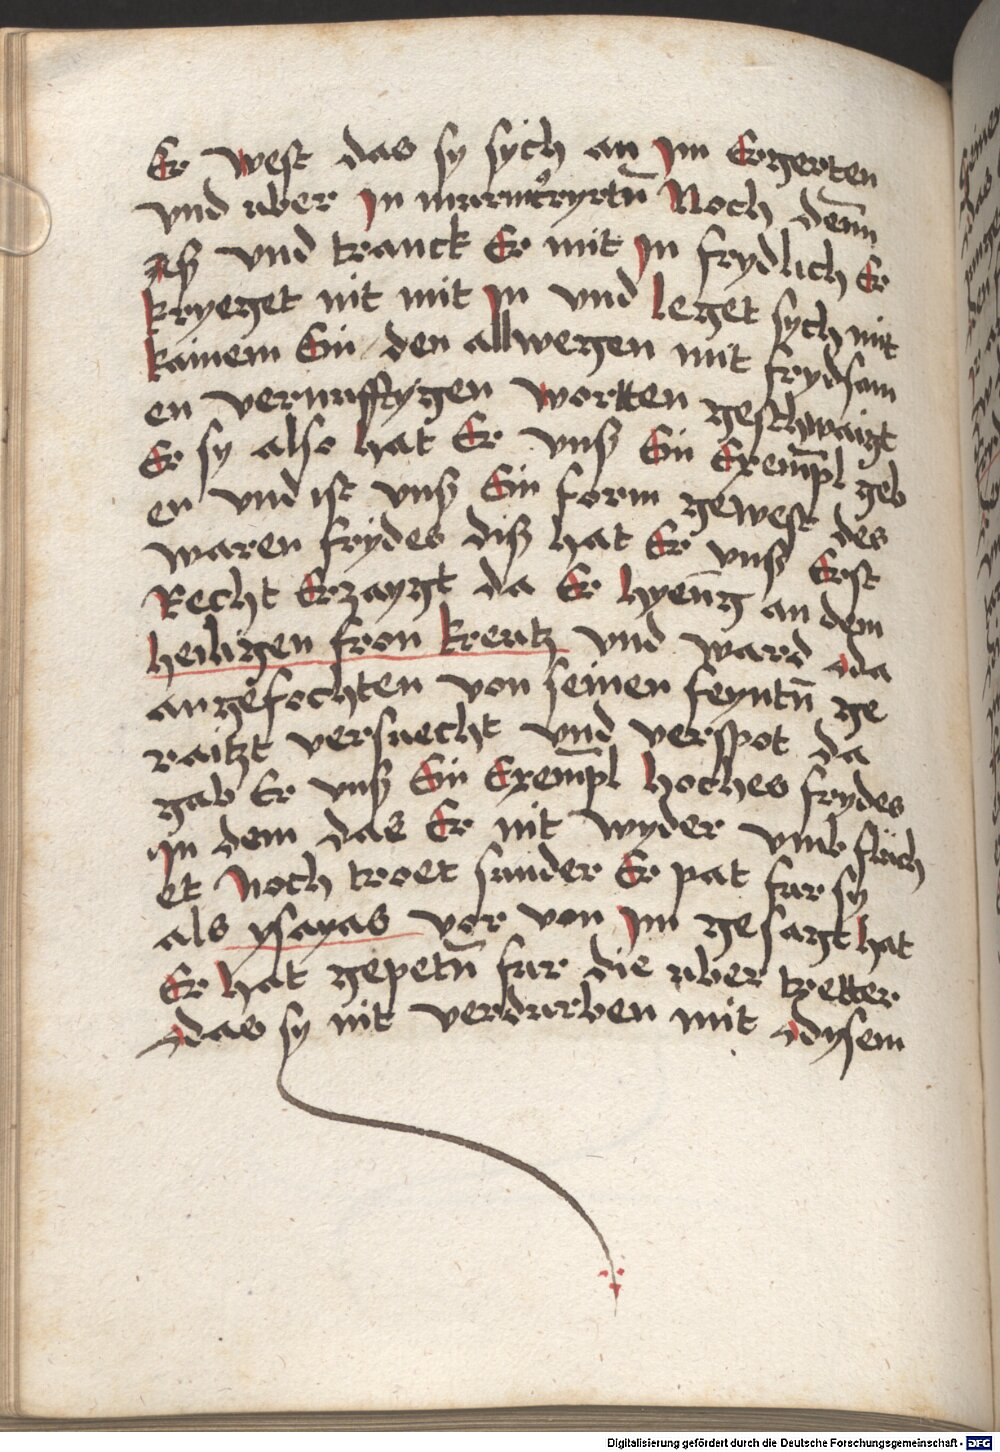 Er west das sy sych an jm Ergerten
vnd vber jn murmeryrtn̄ Noch den̄n
Aß vnd tranck Er mit jn frydlich Er
kryeget nit mit jn vnd leget sych mit
kainem Ein / den allwegen mit frydsam
en vernufftygen wortten geschwaigt
Er sy also hat Er vnß Ein Exemp̄l geb
en vnd ist vnß Ein form gewest des
waren frydes diß hat Er vnß Erst
Recht Erzaygt da Er hyen̄g an dem
heiligen fron kreutz vnd ward da
angefochten von seinen feyntn̄ ge
raitzt versuecht vnd verspot da
gab Er vnß Ein Exemp̄l hoches frydes
jn dem das Er nit wyder vmb fluch
et Noch troet sunder Er pat fur sy
als ysayas vor von jm gesagt hat
Er hat gepetn̄ fur die vber tretter
das sy nit verdurben mit dysem
Digitalisierung gefördert durch die Deutsche Forschungsgemeinschaft - DFG